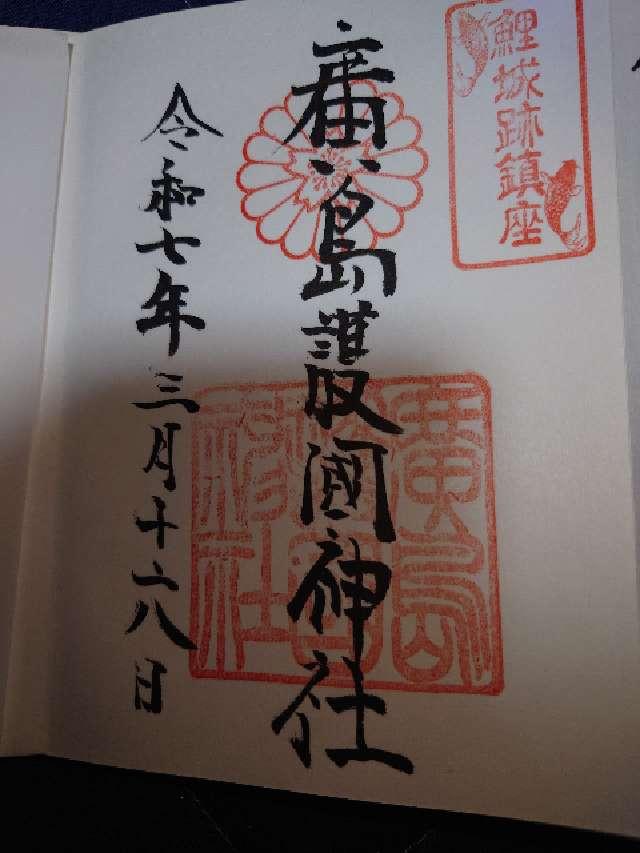 鯉城跡鎮座
廣島護國神社
廣島護國神社
令和七年三月十六日